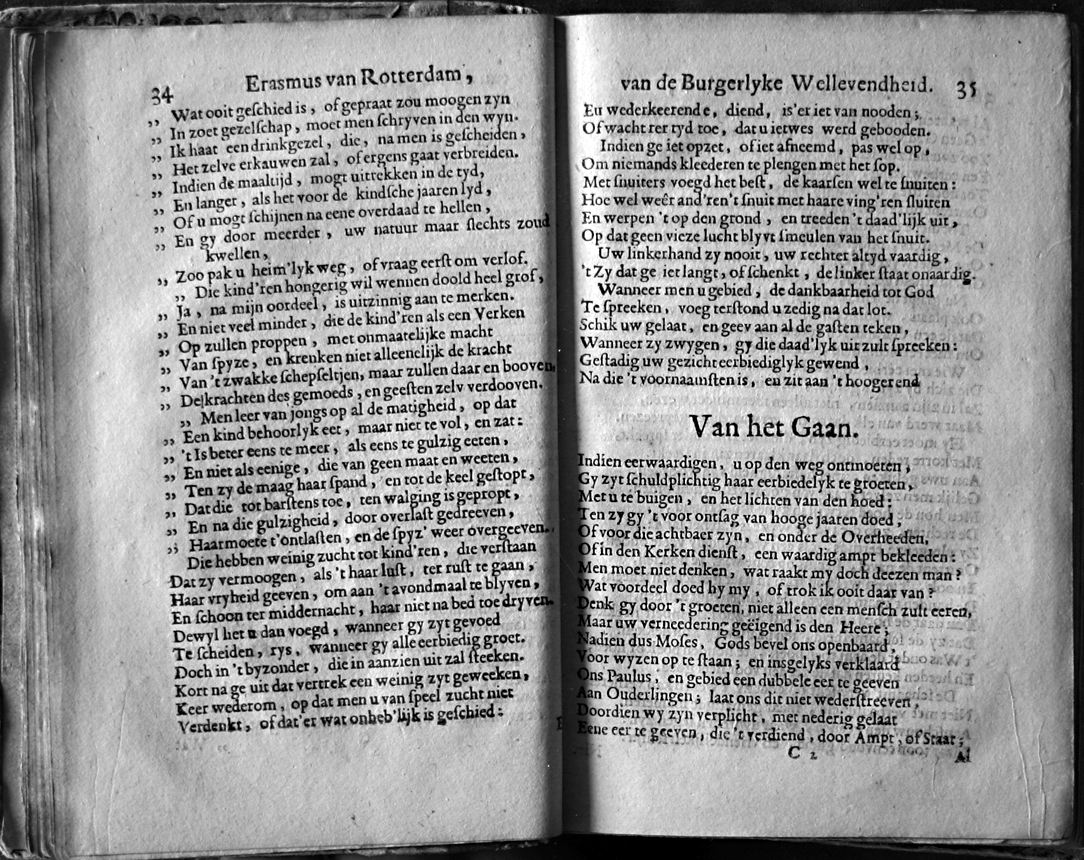 34 Erasmus van Rotterdam,
,, Wat ooit geſchied is, of gepraat zou moogen zyn
,, In zoet gezelſchap, moet men ſchryven in den wyn.
,, Ik haat een drinkgezel, die, na men is geſcheiden,
,, Het zelve erkauwen zal, of ergens gaat verbreiden.
,, Indien de maaltijd, mogt uitrekken in de tyd,
,, En langer, als het voor de kindſche jaaren lyd,
,, Of u mogt ſchijnen na eene overdaad te hellen,
,, En gy door meerder, uw natuur maar ſlechts zoud
kwellen,
,, Zoo pak u heim'lyk weg, of vraag eerſt om verlof.
,, Die kind'ren hongerig wil wennen doold heel grof,
,, Ja, na mijn oordeel, is uitzinnig aan te merken.
,, En niet veel minder, die de kind'ren als een Verken
,, Op zullen proppen, met onmaatelijke macht
,, Van ſpyze, en krenken niet alleenelijk de kracht
,, Van 't zwakke ſchepſeltjen, maar zullen daar en booven
,, De krachten des gemoeds, en geeſten zelv verdooven.
,, Men leer van jongs op al de matigheid, op dat
,, Een kind behoorlyk eet, maar niet te vol, en zat:
,, 't Is beter eens te meer, als eens te gulzig eeten,
,, En niet als eenige, die van geen maat en weeten,
,, Ten zy de maag haar ſpand, en tot de keel geſtopt,
,, Dat die tot barſtens toe, ten walging is gepropt,
,, En na die gulzigheid, door overlaſt gedreeven,
,, Haar moete t'ontlaſten, en de ſpyz' weer overgeeven.
Die hebben weinig zucht tot kind'ren, die verſtaan
Dat zy vermoogen, als 't haar luſt, ter ruſt te gaan,
Haar vryheid geeven, om aan 't avondmaal te blyven,
En ſchoon ter middernacht, haar niet na bed toe dryven.
Dewyl het u dan voegd, wanneer gy zyt gevoed
Te ſcheiden, rys, wanneer gy alle eerbiedig groet.
Doch in 't byzonder, die in aanzien uit zal ſteeken.
Kort na ge uit dat vertrek een weinig zyt geweeken,
Keer wederom, op dat men u van ſpeel zucht niet
Verdenkt, of dat'er wat onheb'lijk is geſchied:
van de Burgerlyke Wellevendheid. 35
En wederkeerende, diend, is'er iet van nooden;
Of wacht ter tyd toe, dat u ietwes werd gebooden.
Indien ge iet opzet, of iet afneemd, pas wel op,
Om niemands kleederen te plengen met het ſop.
Met ſnuiters voegd het beſt, de kaarſen wel te ſnuiten:
Hoe wel weêr and'ren 't ſnuit met haare ving'ren ſluiten
En werpen 't op den grond, en treeden 't daad'lijk uit,
Op dat geen vieze lucht blyvt ſmeulen van het ſnuit.
Uw linkerhand zy nooit, uw rechter altyd vaardig,
't Zy dat ge iet langt, of ſchenkt, de linker ſtaat onaardig.
Wanneer men u gebied, de dankbaarheid tot God
Te ſpreeken, voeg terſtond u zedig na dat lot.
Schik uw gelaat, en geev aan al de gaſten teken,
Wanneer zy zwygen, gy die daad'lyk uit zult ſpreeken:
Geſtadig uw gezicht eerbiediglyk gewend,
Na die 't voornaamſten is, en zit aan 't hooger end
Van het Gaan.
Indien eerwaardigen, u op den weg ontmoeten,
Gy zyt ſchuldplichtig haar eerbiedelyk te groeten,
Met u te buigen, en het lichten van den hoed:
Ten zy gy 't voor ontſag van hooge jaaren doed,
Of voor die achtbaer zyn, en onder de Overheeden,
Of in den Kerken dienſt, een waardig ampt bekleeden:
Men moet niet denken, wat raakt my doch deezen man?
Wat voordeel doed hy my, of trok ik ooit daar van?
Denk gy door 't groeten, niet alleen een menſch zult eeren,
Maar uw verneedering geëigend is den Heere;
Nadien dus Moſes, Gods bevel ons openbaard,
Voor wyzen op te ſtaan; en inſgelyks verklaard
Ons Paulus, en gebied een dubbele eer te geeven
Aan Ouderlingen; laat ons dit niet wederſtreeven,
Doordien wy zyn verplicht, met nederig gelaat
Eene eer te geeven, die 't verdiend, door Ampt, of Staat;
C 2 Al